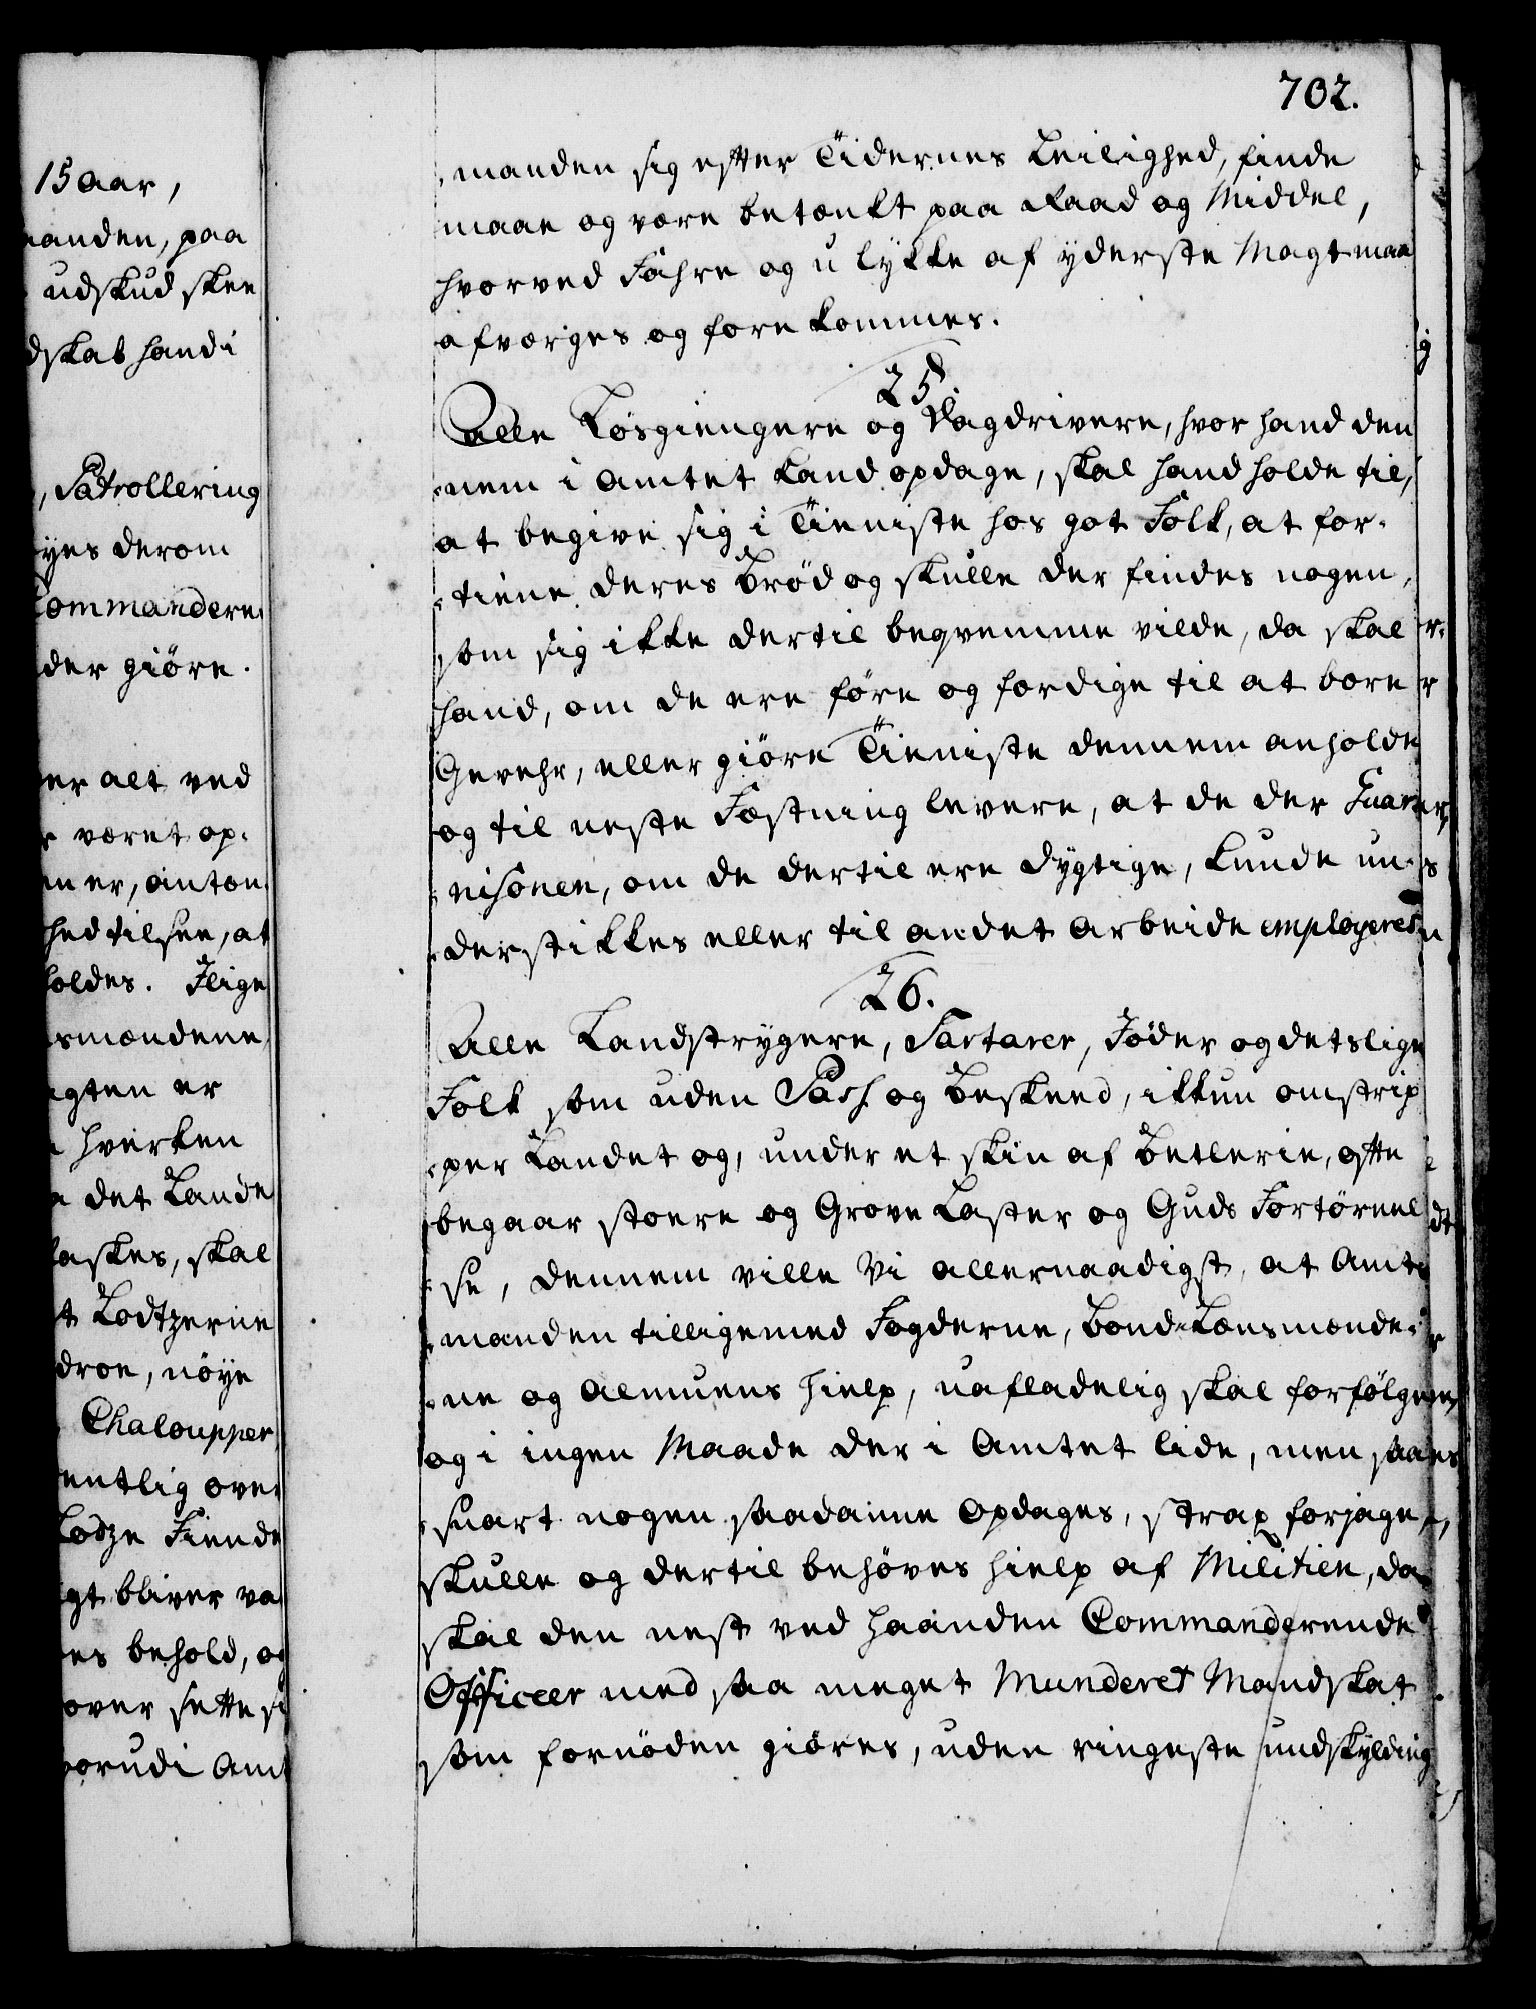 702.
15 aar,
anden, paa
udskud skee
dskab hand i
, Patrollering
yes derom
Commandere
der giöre.
er alt ved
r været op-
en er, anten
hed tilsee, at
oldes. Jlige
smændene
gten er
hverken
det Lande
askes, skal
t Lodtzerne
droe, nöye
Chalouper
entlig over
Lodze Fiende
gt bliver va
es behold, og
over sette si
vorudi Amt
manden sig efter Tidernes Leilighed, finde
maae og være betænkt paa Raad og Middel,
hvorved Fahre og ulykke af yderste Magt maa
afværges og forekommes.
25.
Alle Løsgiengere og Vagdrivere, hvor hand den
nem i Amtet kand opdage, skal hand holde til,
at begive sig i Tieniste hos got Folk, at for-
tiene deres Bröd og skulle der findes nogen,
som sig ikke dertil beqvemme vilde, da skal
hand, om de ere före og færdige til at bære
Gevehr, eller giöre Tieniste dennem anholde
og til neste Fæstning levere, at de der Guar-
nisonen, om de dertil ere dygtige, kunde un-
derstikkes eller til andet Arbeide employeres
26.
Alle Landstrygere, Tartarer, Jöder og detslige
Folk som uden Pass og Beskeed, ikkun omstrip
per Landet og, under et skin af Betlerie, ofte
begaar stoere og Grove Laster og Guds Fortörnel
se, dennem ville Vi allernaadigst, at Amt-
manden tilligemed Fogderne, Bonde-Lensmænde-
ne og Almuens hielp, uafladelig skal forfölge
og i ingen Maade der i Amtet lide, men saa
snart nogen saadanne Opdages, strax forjage,
skulle og dertil behöves hielp af Militien, da
skal den nest ved haanden Commanderende
Officeer med saa meget Munderet Mandskab
som fornöden giöres, uden ringeste undskylding